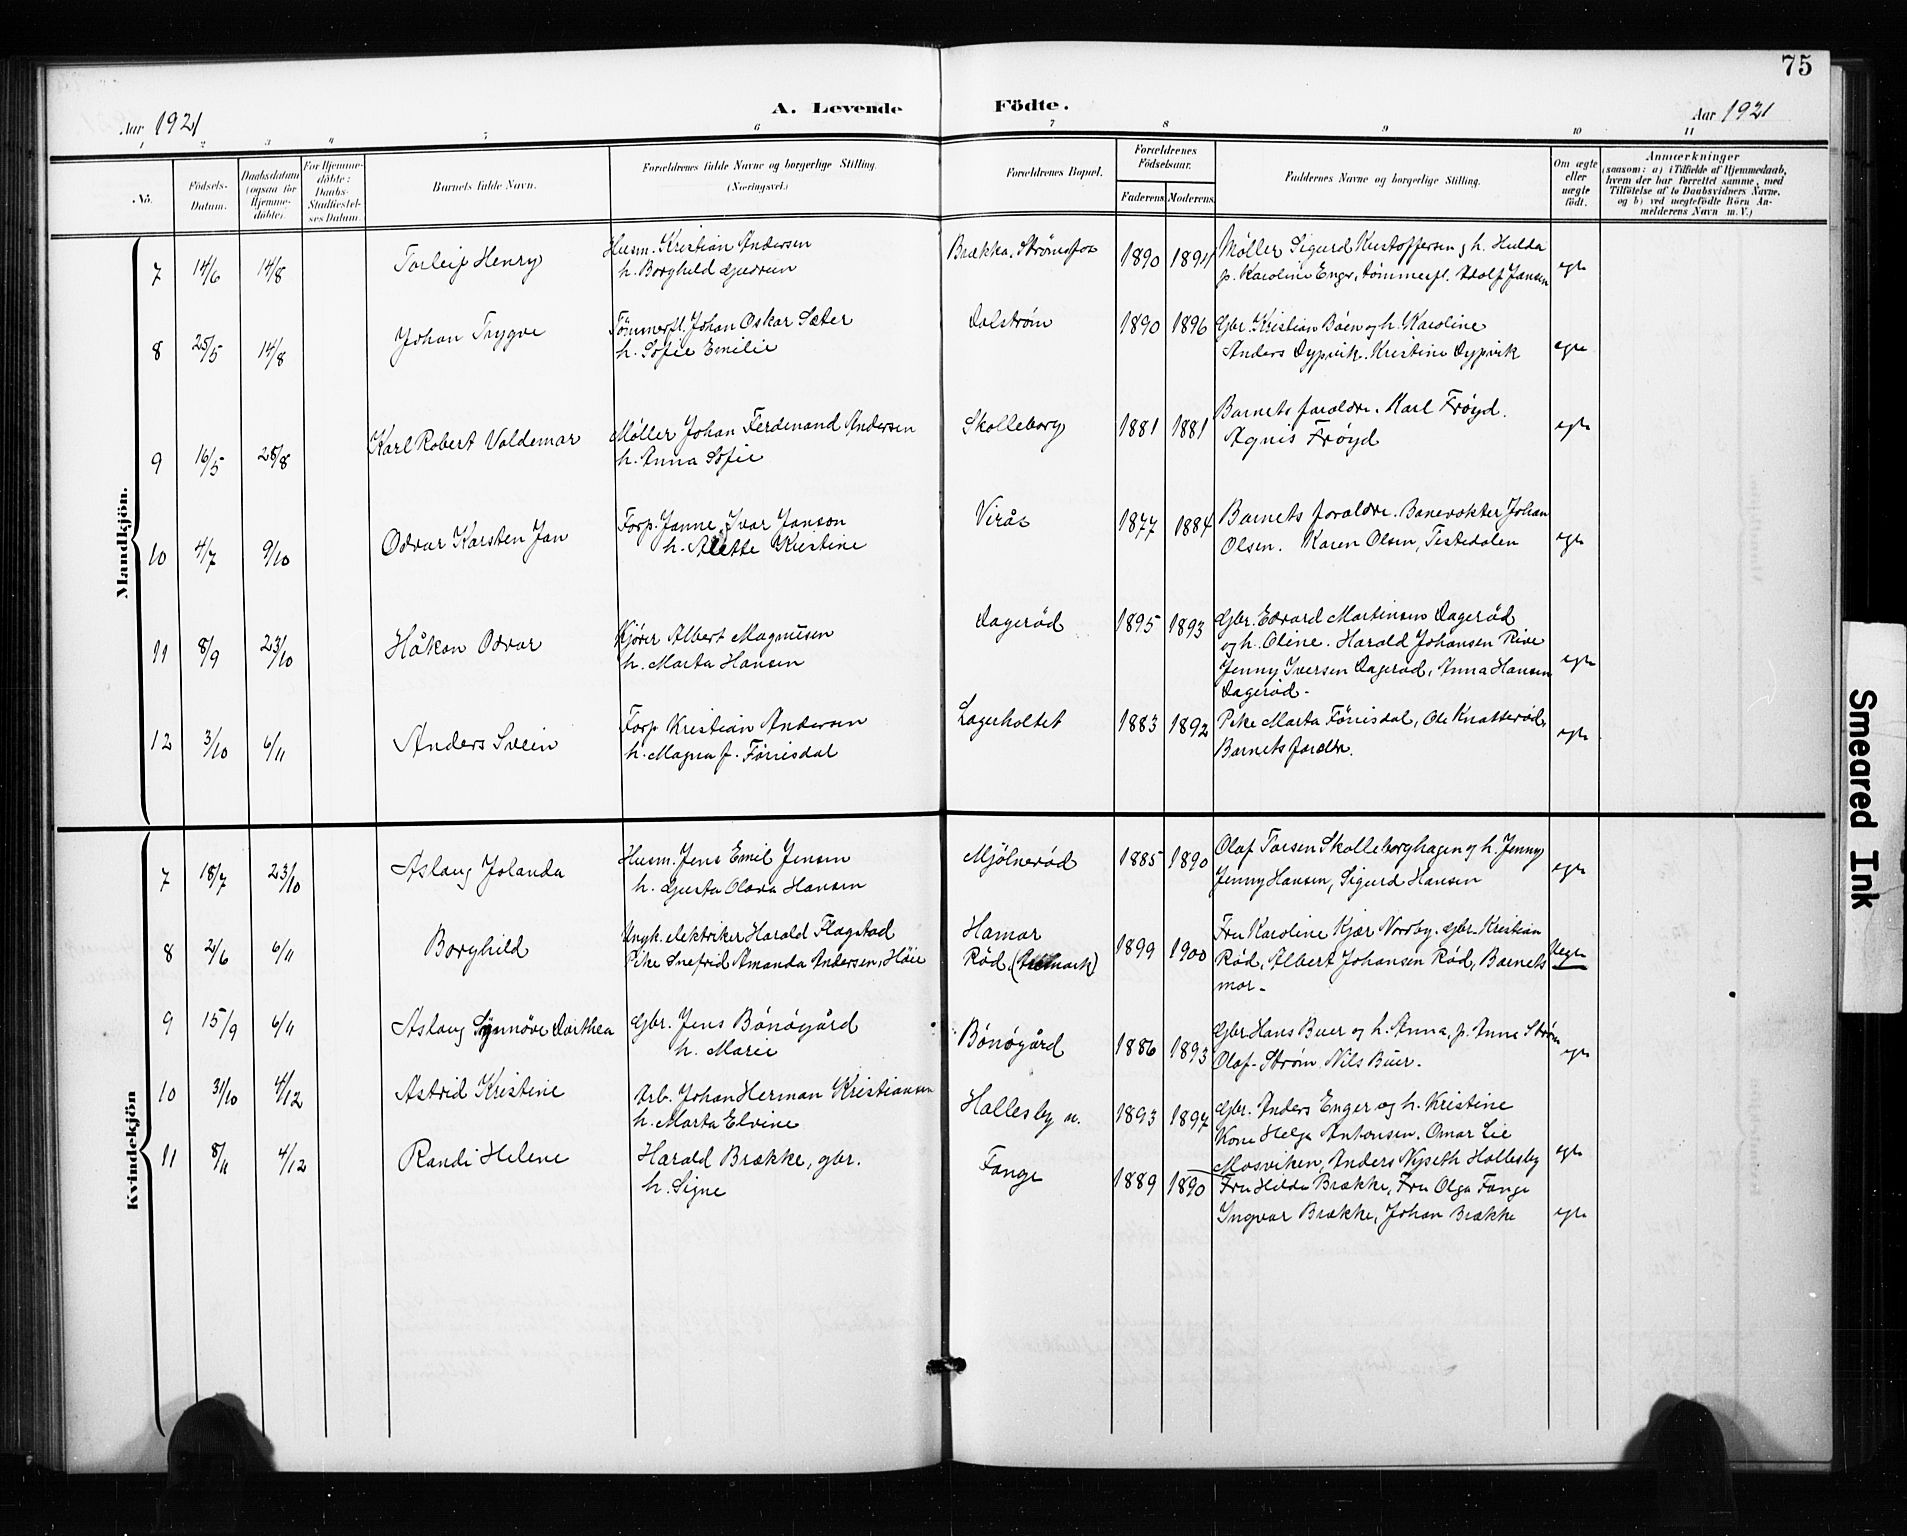 75
A. Levende Födte.
Aar 1921
Aar 1921
1 2 3 4 5 6 7 8 9 10 11
No.
Födsels-
Datum.
Daabsdatum
(ogsaa for
Hjemme-
döbte).
For Hjemme-
döbte:
Daabs-
Stadfæstel-
ses Datum.
Barnets fulde Navn.
Forældrenes fulde Navne og borgerlige Stilling.
(Næringsvei.)
Forældrenes Bopæl.
Forældrenes
Födselsaar.
Faderens. Moderens.
Faddernes Navne og borgerlige Stilling.
Om ægte
eller
uægte
född.
Anmærkninger
(saasom: a) i Tilfælde af Hjemmedaab,
hvem der har forrettet samme, med
Tilföielse af to Daabsvidners Navne,
og b) ved uægtefödte Börn An-
melderens Navn m. V.)
Mandkjön.
7 14/6 14/8 Torleif Henry
Husm. Kristian Andersen
h. Borghild Gudrun
Brække, Strømsfos 1890 1891
Møller Sigurd Kristoffersen og h. Hulda
p. Karoline Enger, tømmerfl. Adolf Jansen
egte
8 25/5 14/8 Johan Trygve
Tømmerfl. Johan Oskar Sæter
h. Sofie Emilie
Dalstrøm 1890 1896
Gbr. Kristian Bøen og h. Karoline
Anders Dypvik. Kristine Dypvik
egte
9 16/5 28/8 Karl Robert Valdemar
Møller Johan Ferdinand Andersen
h. Anna Sofie
Skolleborg 1881 1881
Barnets forældre. Karl Frøyd.
Agnis Frøyd
egte
10 4/7 9/10 Odvar Karsten Jan
Forp. Janne Ivar Janson
h. Alette Kristine
Virås 1877 1884
Barnets forældre. Banevokter Johan
Olsen. Karen Olsen, Tistedalen
egte
11 8/9 23/10 Håkon Odvar
Kjører Albert Magnusen
h. Marta Hansen
Dagerød 1895 1893
Gbr. Edvard Martinsen Dagerød
og h. Oline. Harald Johansen Rive
Jenny Iversen Dagerød, Anna Hansen
Dagerød.
egte
12 3/10 6/11 Anders Svein
Forp Kristian Andersen
h. Magna f. Förrisdal
Lagerholtet 1883 1892
Pike Marta Förrisdal, Ole Knatterød
Barnets fordre.
egte
Kvindekjön
7 18/7 23/10 Aslaug Jolanda
Husm. Jens Emil Jensen
h. Gjerta Olava Hansen
Mjølnerød 1885 1890
Olaf Torsen Skolleborghagen og h. Jenny
Jenny Hansen, Sigurd Hansen
egte
8 2/6 6/11 Borghild
Ungk. elektriker Harald Flagstad
Pike Snefrid Amanda Andersen, Høie
Hamar
Rød, (Aremark) 1899 1900
Fru Karoline Kjær Nordby. Gbr. Kristian
Rød, Albert Johansen Rød, Barnets
mor.
Uegte
9 15/9 6/11 Aslaug Synnöve Dorthea
Gbr. Jens Bönögård
h. Marie
Bönögård 1886 1893
Gbr Hans Buer og h. Anna, p. Anna Strøm
Olaf Strøm Nils Buer.
egte
10 31/10 4/12 Astrid Kristine
Arb. Johan Herman Kristiansen
h. Marta Elvine
Hallesby n. 1893 1897
Gbr. Anders Enger og h. Kristine
Kone Helga Antonsen. Omar Lie
Mosviken, Anders Nyseth Hallesby
egte
11 8/11 4/12 Randi Helene
Harald Brække, gbr.
h. Signe
Fange 1889 1890
Fru Hilda Brække, Fru Olga Fange
Ingvar Brække, Johan Brække
egte
Smeared Ink